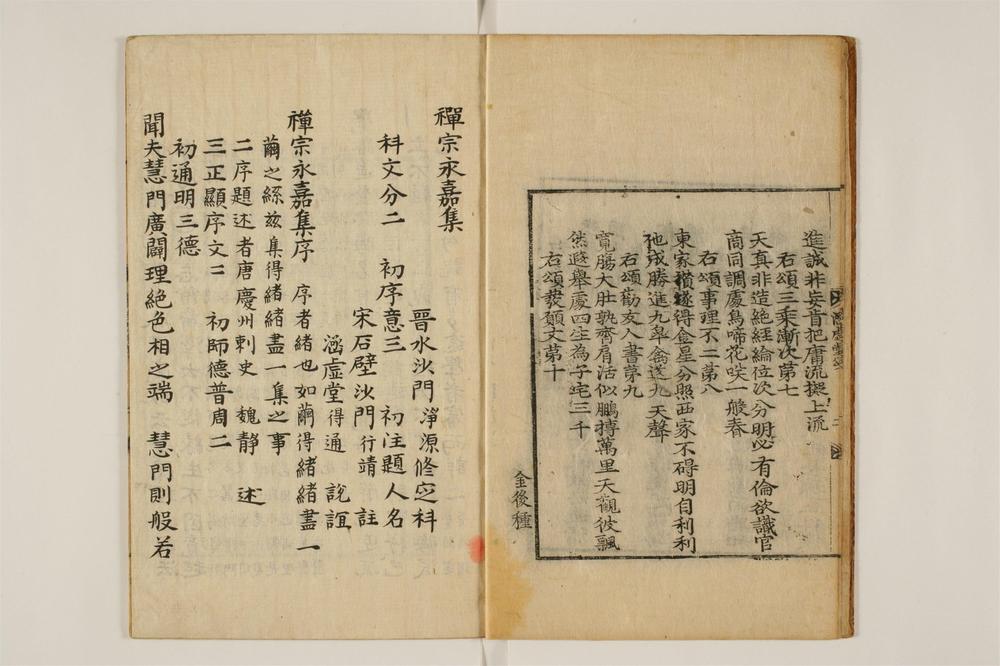 進誠非妄肯把庸流擬上流
右頌三乘漸次第七
天真非造絶經綸位次分明必有倫欲識官
商同調處鳥啼花咲一般春
右頌事理不二第八
東家攢燧得金星分照西家不碍明自利利
他成勝進九皐禽送九天聲
右頌勸友人書第九
寬膓大肚孰齊肩活似鵬搏萬里天觀彼飄
然遐舉處四生為子宅三千
右頌發願文第十
金後種
禪宗永嘉集
晉水沙門 淨源修定科
科文分二 初序意三 初注題人名
宋石壁沙門 行靖 註
涵虛堂 得通 說誼
禪宗永嘉集序 序者緒也如繭得緒緒盡一
繭之絲玆集得緒緒盡一集之事
二序題述者唐慶州刺史 魏靜 述
三正顯序文二 初師德普周二
初通明三德
聞夫慧門廣闢理絶色相之端 慧門則般若